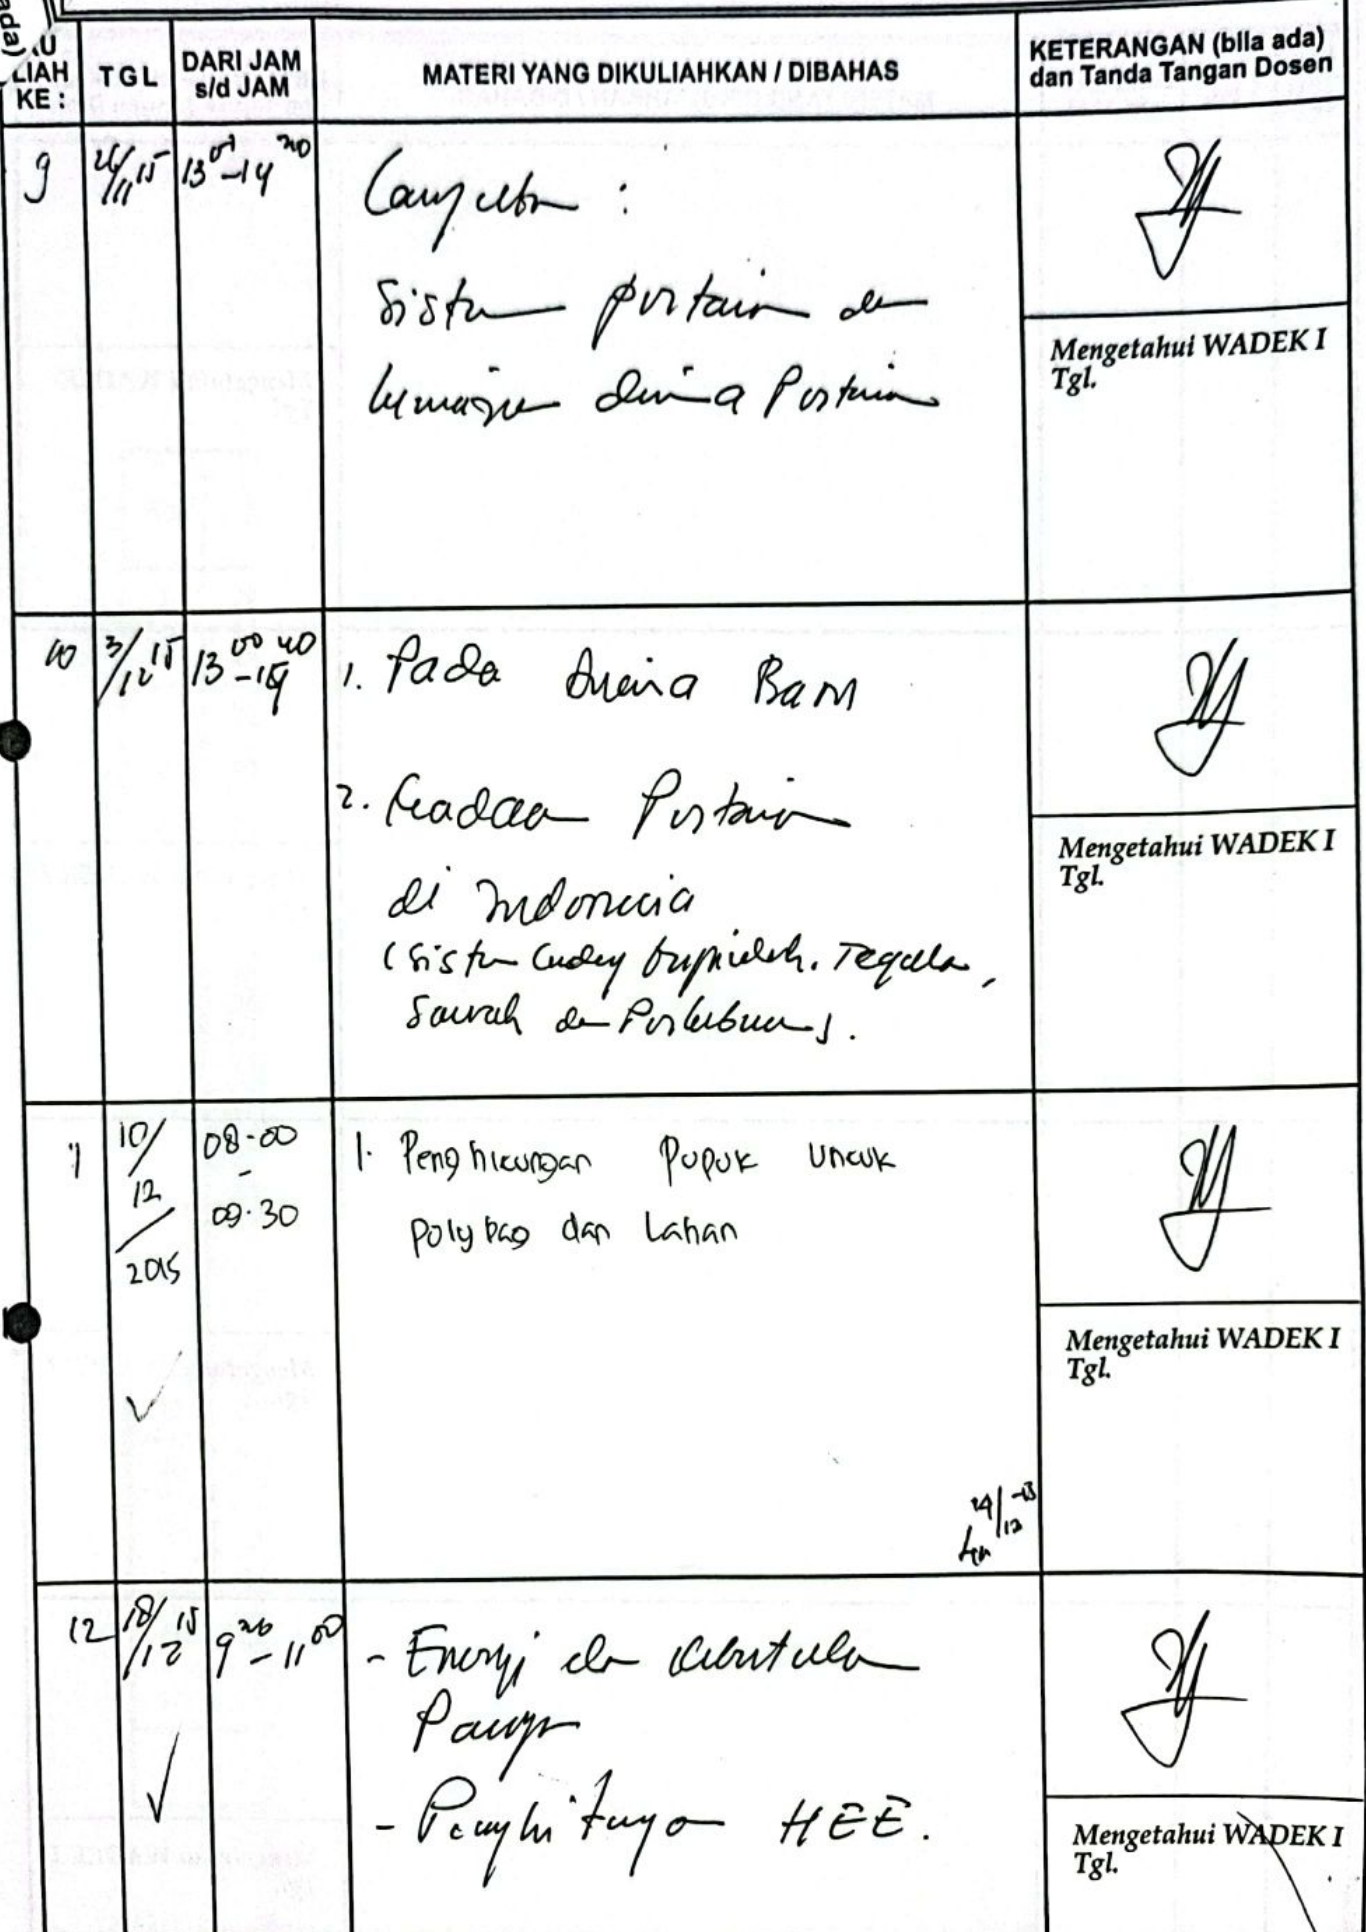 LIAH
KE :
TGL
DARI JAM
s/d JAM
MATERI YANG DIKULIAHKAN / DIBAHAS
KETERANGAN (bila ada)
dan Tanda Tangan Dosen
9
26/11 15
13 00 - 14 40
Lanjutan :
Sistem pertanian dan
kemajuan dunia Pertanian
Mengetahui WADEK I
Tgl.
10
3/12 15
13 00 - 14 40
1. Pada dunia Baru
2. Keadaan Pertanian
di Indonesia
(Sistem Ladang berpindah. Tegalan,
Sawah dan Perkebunan).
Mengetahui WADEK I
Tgl.
11
10/
12
2015
08.00
-
09.30
1. Penghitungan Pupuk untuk
polybag dan Lahan
Mengetahui WADEK I
Tgl.
12
18/12 15
- 11 00
- Energi dan kebutuhan
Pangan
- Penghitungan HEE.
Mengetahui WADEK I
Tgl.